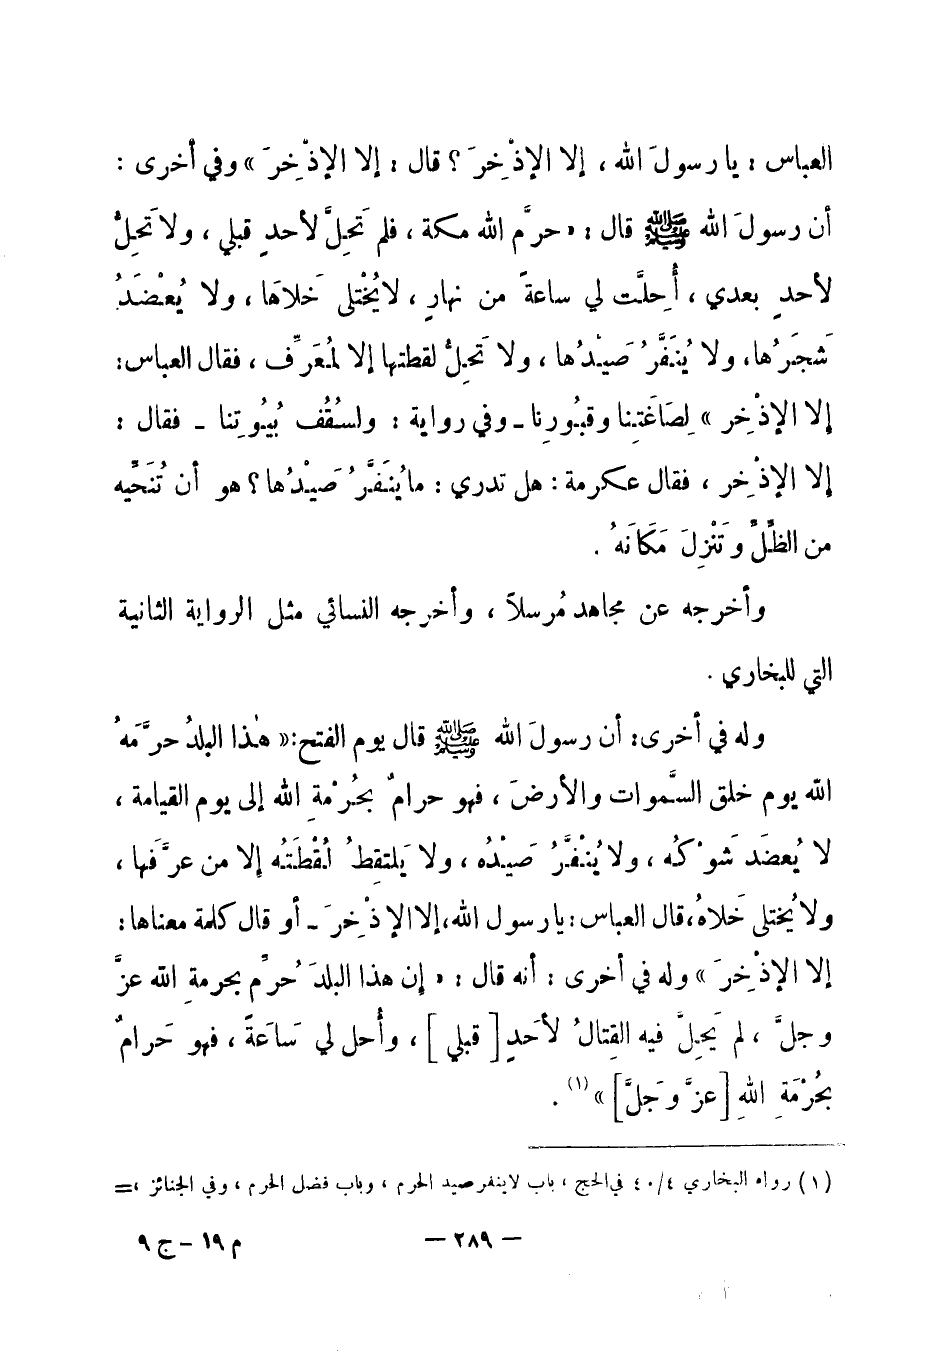 العباس : يا رسولَ الله ، إلا الإذْخِرَ ؟ قال : إلا الإذْخِرَ » وفي أخرى :
أن رسولَ الله ﷺ قال : « حرَّم الله مكة ، فلم تَحِلَّ لأحدٍ قبلي ، ولا تَحِلُّ
لأحدٍ بعدي ، أُحِلَّت لي ساعةً من نهارٍ ، لا يُخْتلى خَلاهَا ، ولا يُعْضَدُ
شَجَرُها، ولا يُنَفَّرُ صَيْدُها ، ولا تَحِلُّ لقطتها إلا لمُعَرِّف ، فقال العباس:
إلا الإذْخِر » لِصَاغَتِنا وقبُورِنا ـ وفي رواية : ولسُقُف بُيُوتِنا ـ فقال :
إلا الإذْخِر ، فقال عكرمة : هل تدري : ما يُنَفَّرُ صَيْدُها ؟ هو أن تُنَحِّيه
من الظِّلِّ وتَنْزِلَ مَكَانَهُ .
وأخرجه عن مجاهد مُرسلاً ، وأخرجه النسائي مثل الرواية الثانية
التي للبخاري .
وله في أخرى: أن رسولَ الله ﷺ قال يوم الفتح:« هٰذا البلدُ حرَّمَهُ
الله يوم خلق السَّموات والأرضَ ، فهو حرامٌ بحُرْمةِ الله إلى يوم القيامة ،
لا يُعضَد شَوْكُه ، ولا يُنْفَّرُ صَيْدُه ، ولا يَلتقِطُ لُقْطَتَه إلا من عرَّفها ،
ولا يُختلى خَلاهُ،قال العباس : يا رسول الله،إلا الإذْخِرَ ـ أو قال كلمة معناها :
إلا الإذْخِرَ » وله في أخرى : أنه قال : « إن هذا البلدَ حُرِّم بحرمةِ الله عزَّ
وجلَّ ، لم يَحِلَّ فيه القِتالُ لأحَدٍ [ قبلي ] ، وأُحل لي سَاعَةً ، فهو حَرامٌ
بحُرْمَةِ اللهِ [عزَّ وَجَلَّ] » (١) .
(١) رواه البخاري ٤٠/٤ في الحج ، باب لا ينفر صيد الحرم ، وباب فضل الحرم ، وفي الجنائز ،=
— ٢٨٩ —
م ١٩ – ج ٩